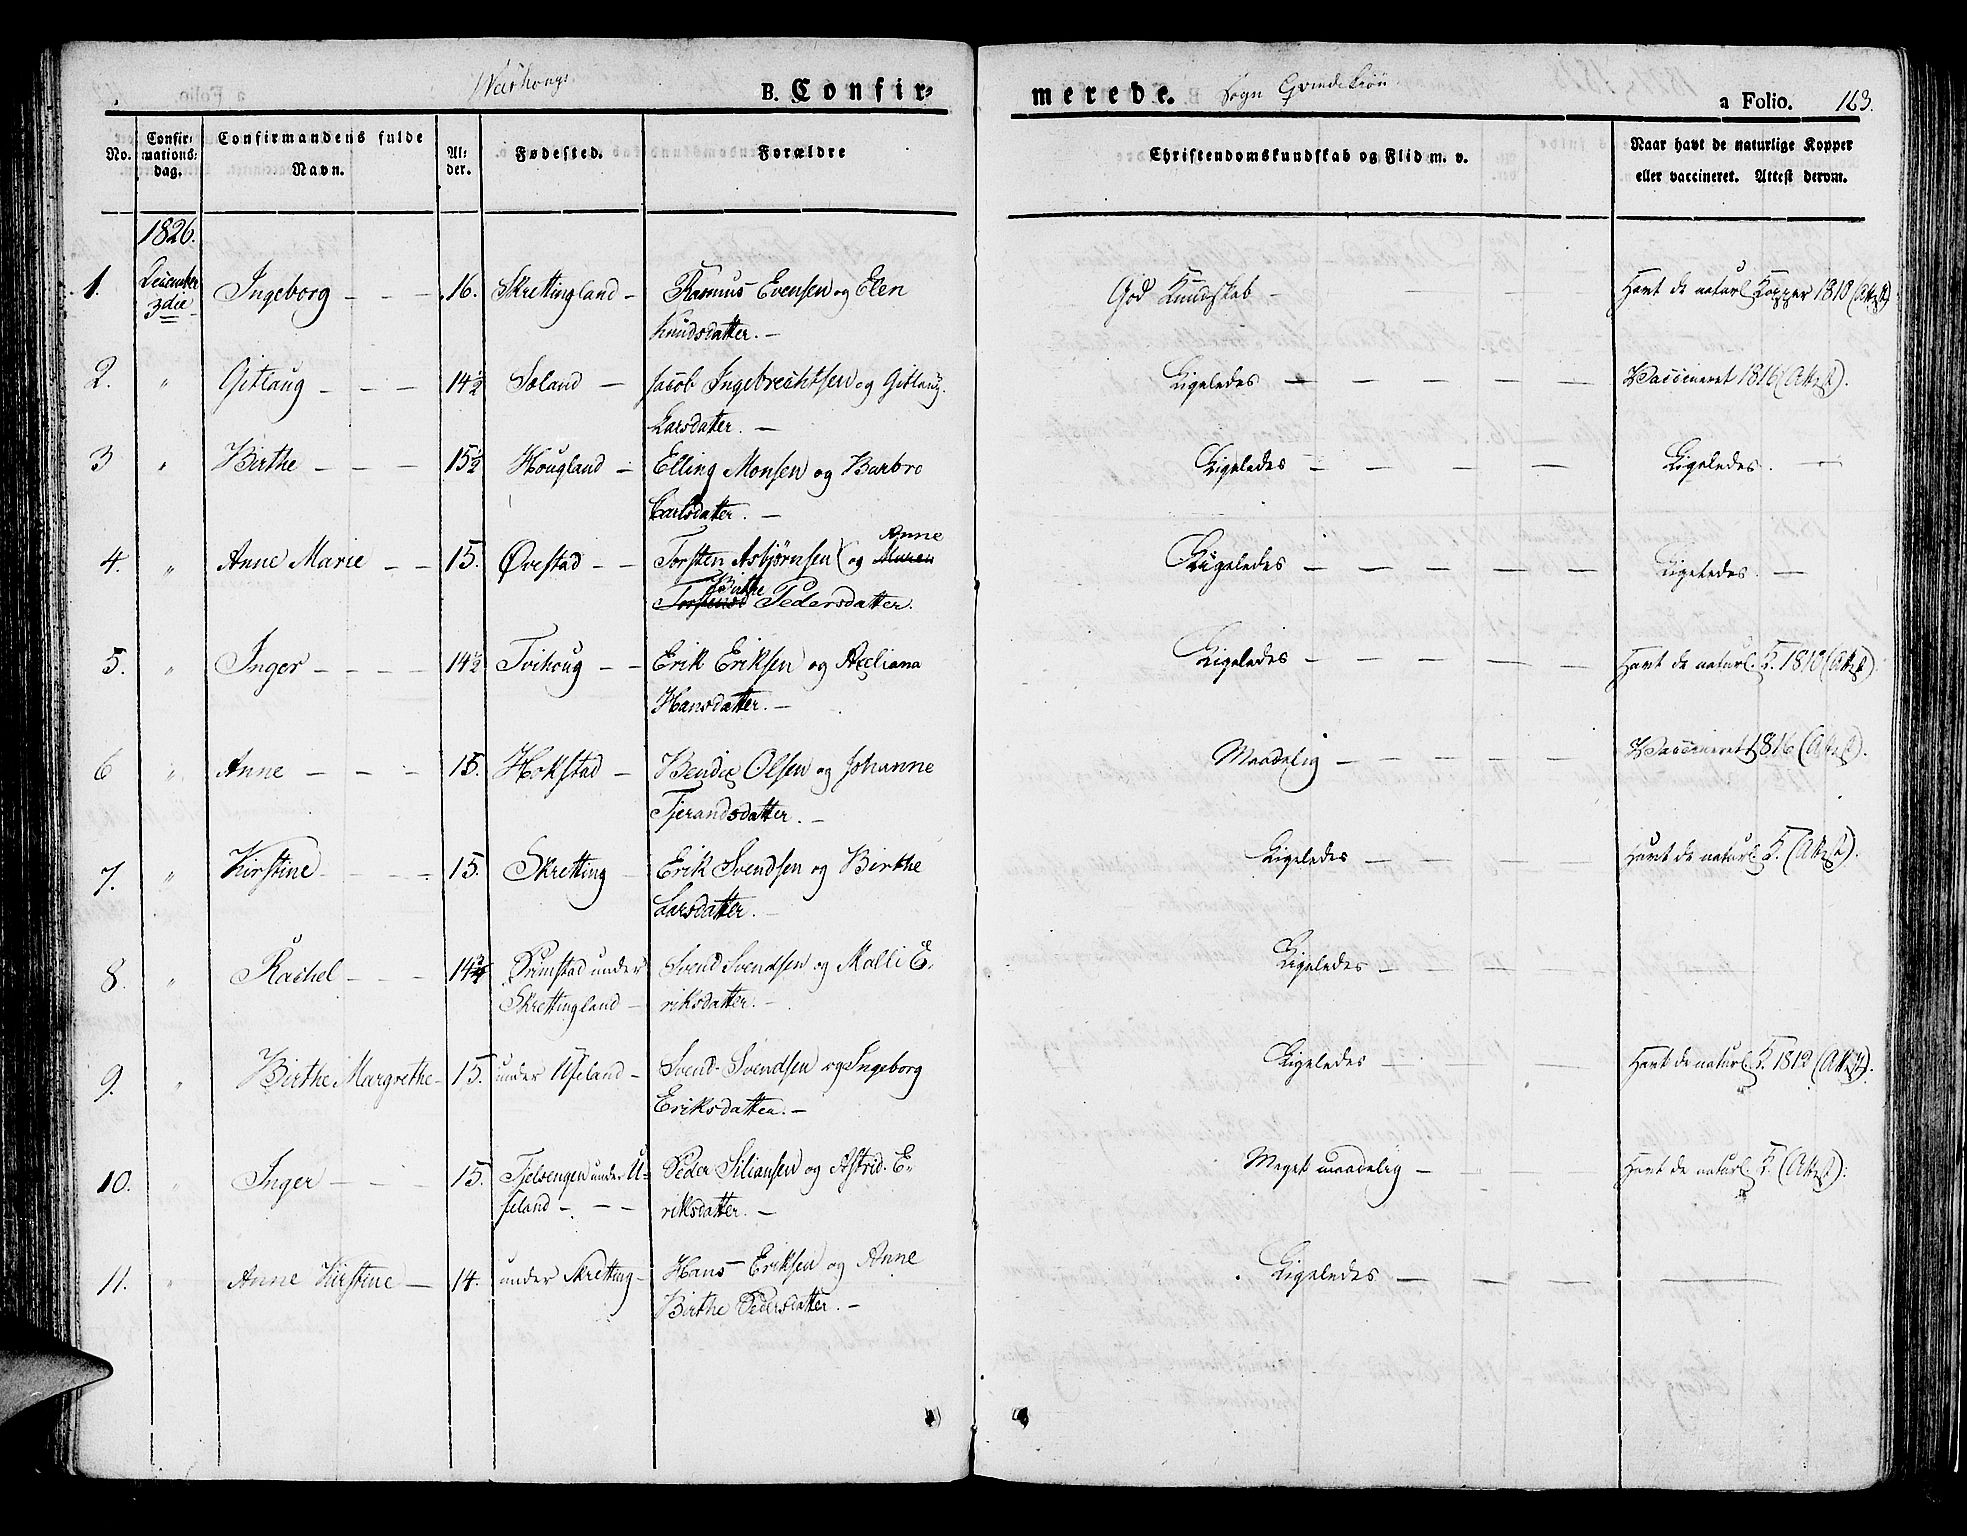 Warhougs B. Confir-
merede. Sogn Qvindekiøn
a Folio. 163.
No. Confirmationsdag. Confirmandens fulde Navn. Alder. Fødested. Forældre Christendomskundskab og Flid m. v. Naar havt de naturlige Kopper eller vaccineret. Attest derom.
1826.
1. December 3die Ingeborg — — — 16. Skrettingland — Rasmus Evensen og Elen God Kundskab — — — Havt de naturl. Kopper 1810 (Attest)
Knudsdatter. —
2. " Gitlaug — — — 14½ Søland — Jacob Ingebrechtsen og Gitlaug Ligeledes — — — — — Vaccineret 1816 (Attest).
Larsdatter. —
3 " Birthe — — — 15½ Hougland — Elling Monsen og Barbro Ligeledes — — — — — Ligeledes. —
Carlsdatter. —
Anne
4. " Anne Marie — — 15. Øvestad — — Torsten Asbjørnsen og Maren Ligeledes — — — — — Ligeledes. —
Birthe
Pedersdatter.
5. " Inger — — — — 14½ Tvihoug — — Erik Eriksen og Axeliana Ligeledes — — — — — Havt de naturl. K. 1810 (Attest).
Hansdatter. —
6 " Anne — — — 15. Hokstad — Bendix Olsen og Johanne Maadelig — — — — — Vaccineret 1816 (Attest).
Tjerandsdatter. —
7. " Kirstine — — — 15. Skretting — Erik Svendsen og Birthe Ligeledes — — — — Havt de naturl. K. (Attest).
Larsdatter. —
8. " Rachel — — — 14¾ under Svend Svendsen og Malli E- Ligeledes — — — —
Skrettingland — riksdatter. —
9. " Birthe Margrethe — 15. under Useland — Svend Svendsen og Ingeborg Ligeledes — — — — Havt de naturl. K. 1812 (Attest).
Eriksdatter. —
10. " Inger — — — 15. Tjelsengen under U- Peder Siliansen og Astrid E- Meget maadelig — — Havt de naturl. K. (Attest).
seland — — — riksdatter. —
11. " Anne Kirstine — 14. under Skretting — Hans Eriksen og Anne Ligeledes — — — —
Birthe Pedersdatter. —